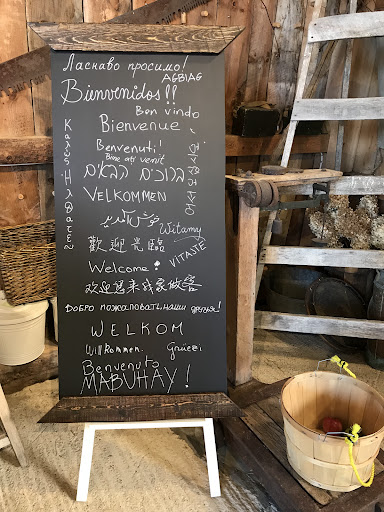 Ласкаво просимо!
AGBIAG
Bienvenidos!!
Ben vindo
Bienvenue
Benvenuti!
Bine ati venit
ברוכים הבאים
VELKOMMEN
خوش آمدید
Witamy
歡迎光臨
VITAJTE
Welcome!
欢迎您来我家做客
Добро пожаловать, наши друзья!
WELKOM
Willkommen.
Grüezi
Benvenuto
MABUHAY!
Καλώς Ήλθατε